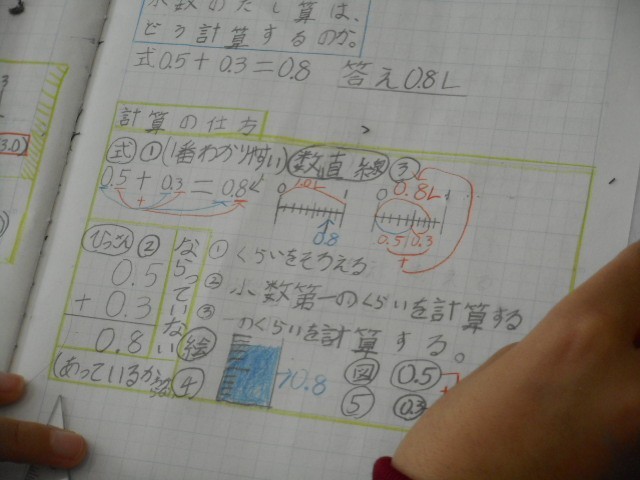 小数のたし算は、
どう計算するのか。
式0.5+0.3=0.8 答え0.8L
計算の仕方
式①(1番わかりやすい) 数直線③
0.5+0.3=0.8
0 1
0.8
0 0.8L 1
0.5 0.3
+
ひっさん②
0.5
+ 0.3
0.8
ならっていない
(あっているか
①くらいをそろえる
②小数第一のくらいを計算する
③一のくらいを計算する。
絵④
0.8
図⑤
0.5
0.3
3.0